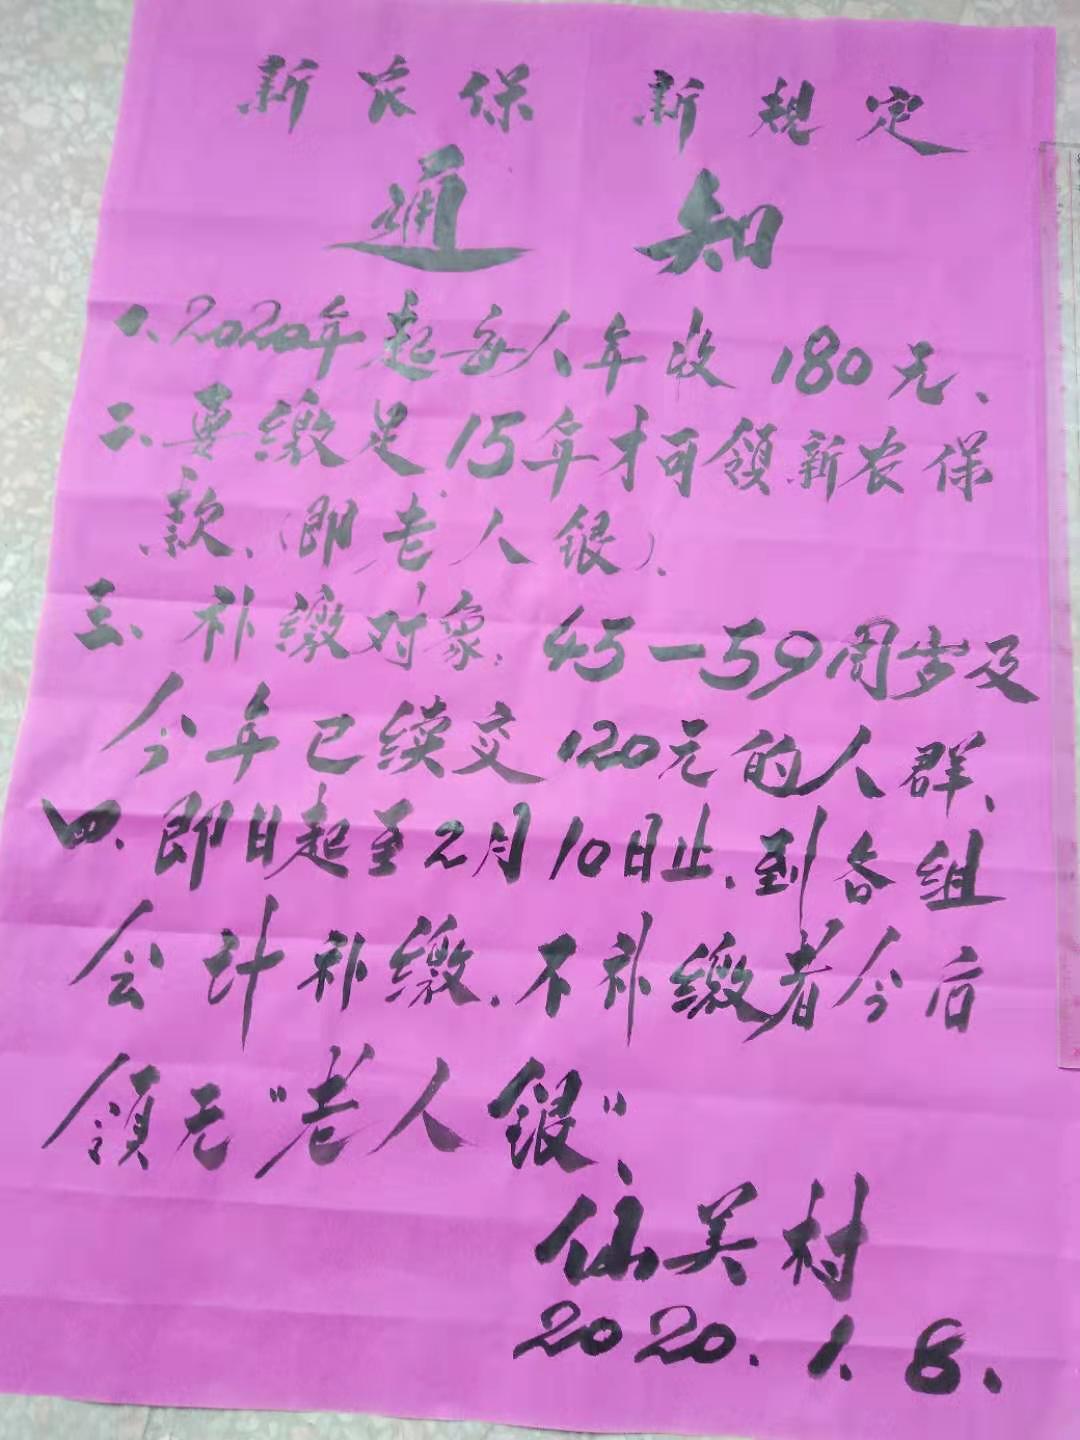 新农保 新规定
通知
一、2020年起每人年收180元、
二、要缴足15年才可领新农保
款、(即老人银)、
三、补缴对象:45-59周岁及
今年已续交120元的人群、
四、即日起至2月10日止、到各组
会计补缴、不补缴者今后
领无"老人银"、
仙美村
2020.1.8.